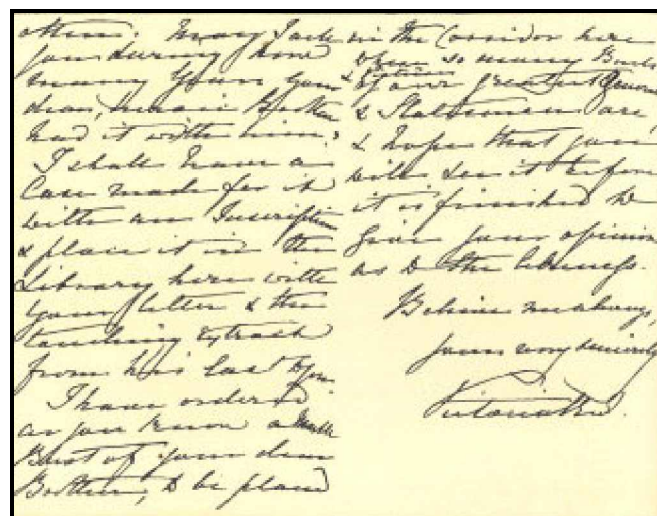 others. May I ask
you during how
many years your
dear, heroic Brother
had it with him?
I shall have a
Case made for it
with an Inscription
& place it in the
Library here with
your letter & the
touching extract
from his last to you.
I have ordered
as you know a Marble
Bust of your dear
Brother, to be placed
in the Corridor here
where so many Busts
& Pictures
of our greatest Generals
& Statesmen are,
& hope that you
will see it before
it is finished to
give your opinion
as to the likeness.
Believe me always,
yours very sincerely
Victoria R I.